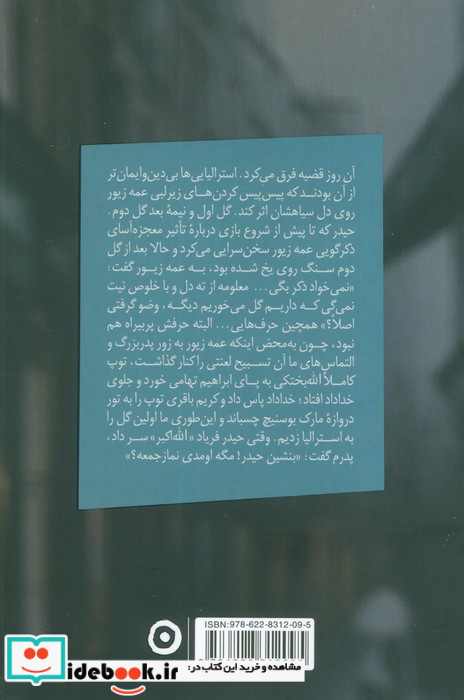 آن روز قضیه فرق می‌کرد. استرالیایی‌ها بی‌دین‌وایمان‌تر
از آن بودند که پیس‌پیس کردن‌های زیرلبی عمه زیور
روی دل سیاهشان اثر کند. گل اول و نیمهٔ بعد گل دوم.
حیدر که تا پیش از شروع بازی دربارهٔ تأثیر معجزه‌آسای
ذکرگویی عمه زیور سخن‌سرایی می‌کرد و حالا بعد از گل
دوم سنگ روی یخ شده بود، به عمه زیور گفت:
«نمی‌خواد ذکر بگی... معلومه از ته دل و با خلوص نیت
نمی‌گی که داریم گل می‌خوریم دیگه، وضو گرفتی
اصلاً؟» همچین حرف‌هایی... البته حرفش پربیراه هم
نبود، چون به‌محض اینکه عمه زیور به زور پدربزرگ و
التماس‌های ما آن تسبیح لعنتی را کنار گذاشت، توپ
کاملاً الله‌بختکی به پای ابراهیم تهامی خورد و جلوی
خداداد افتاد؛ خداداد پاس داد و کریم باقری توپ را به تور
دروازهٔ مارک بوسنیچ چسباند و این‌طوری ما اولین گل را
به استرالیا زدیم. وقتی حیدر فریاد «الله‌اکبر» سر داد،
پدرم گفت: «بنشین حیدر! مگه اومدی نماز جمعه؟»
ISBN: 978-622-8312-09-5
مشاهده و خرید این کتاب در:
iidebook.ir